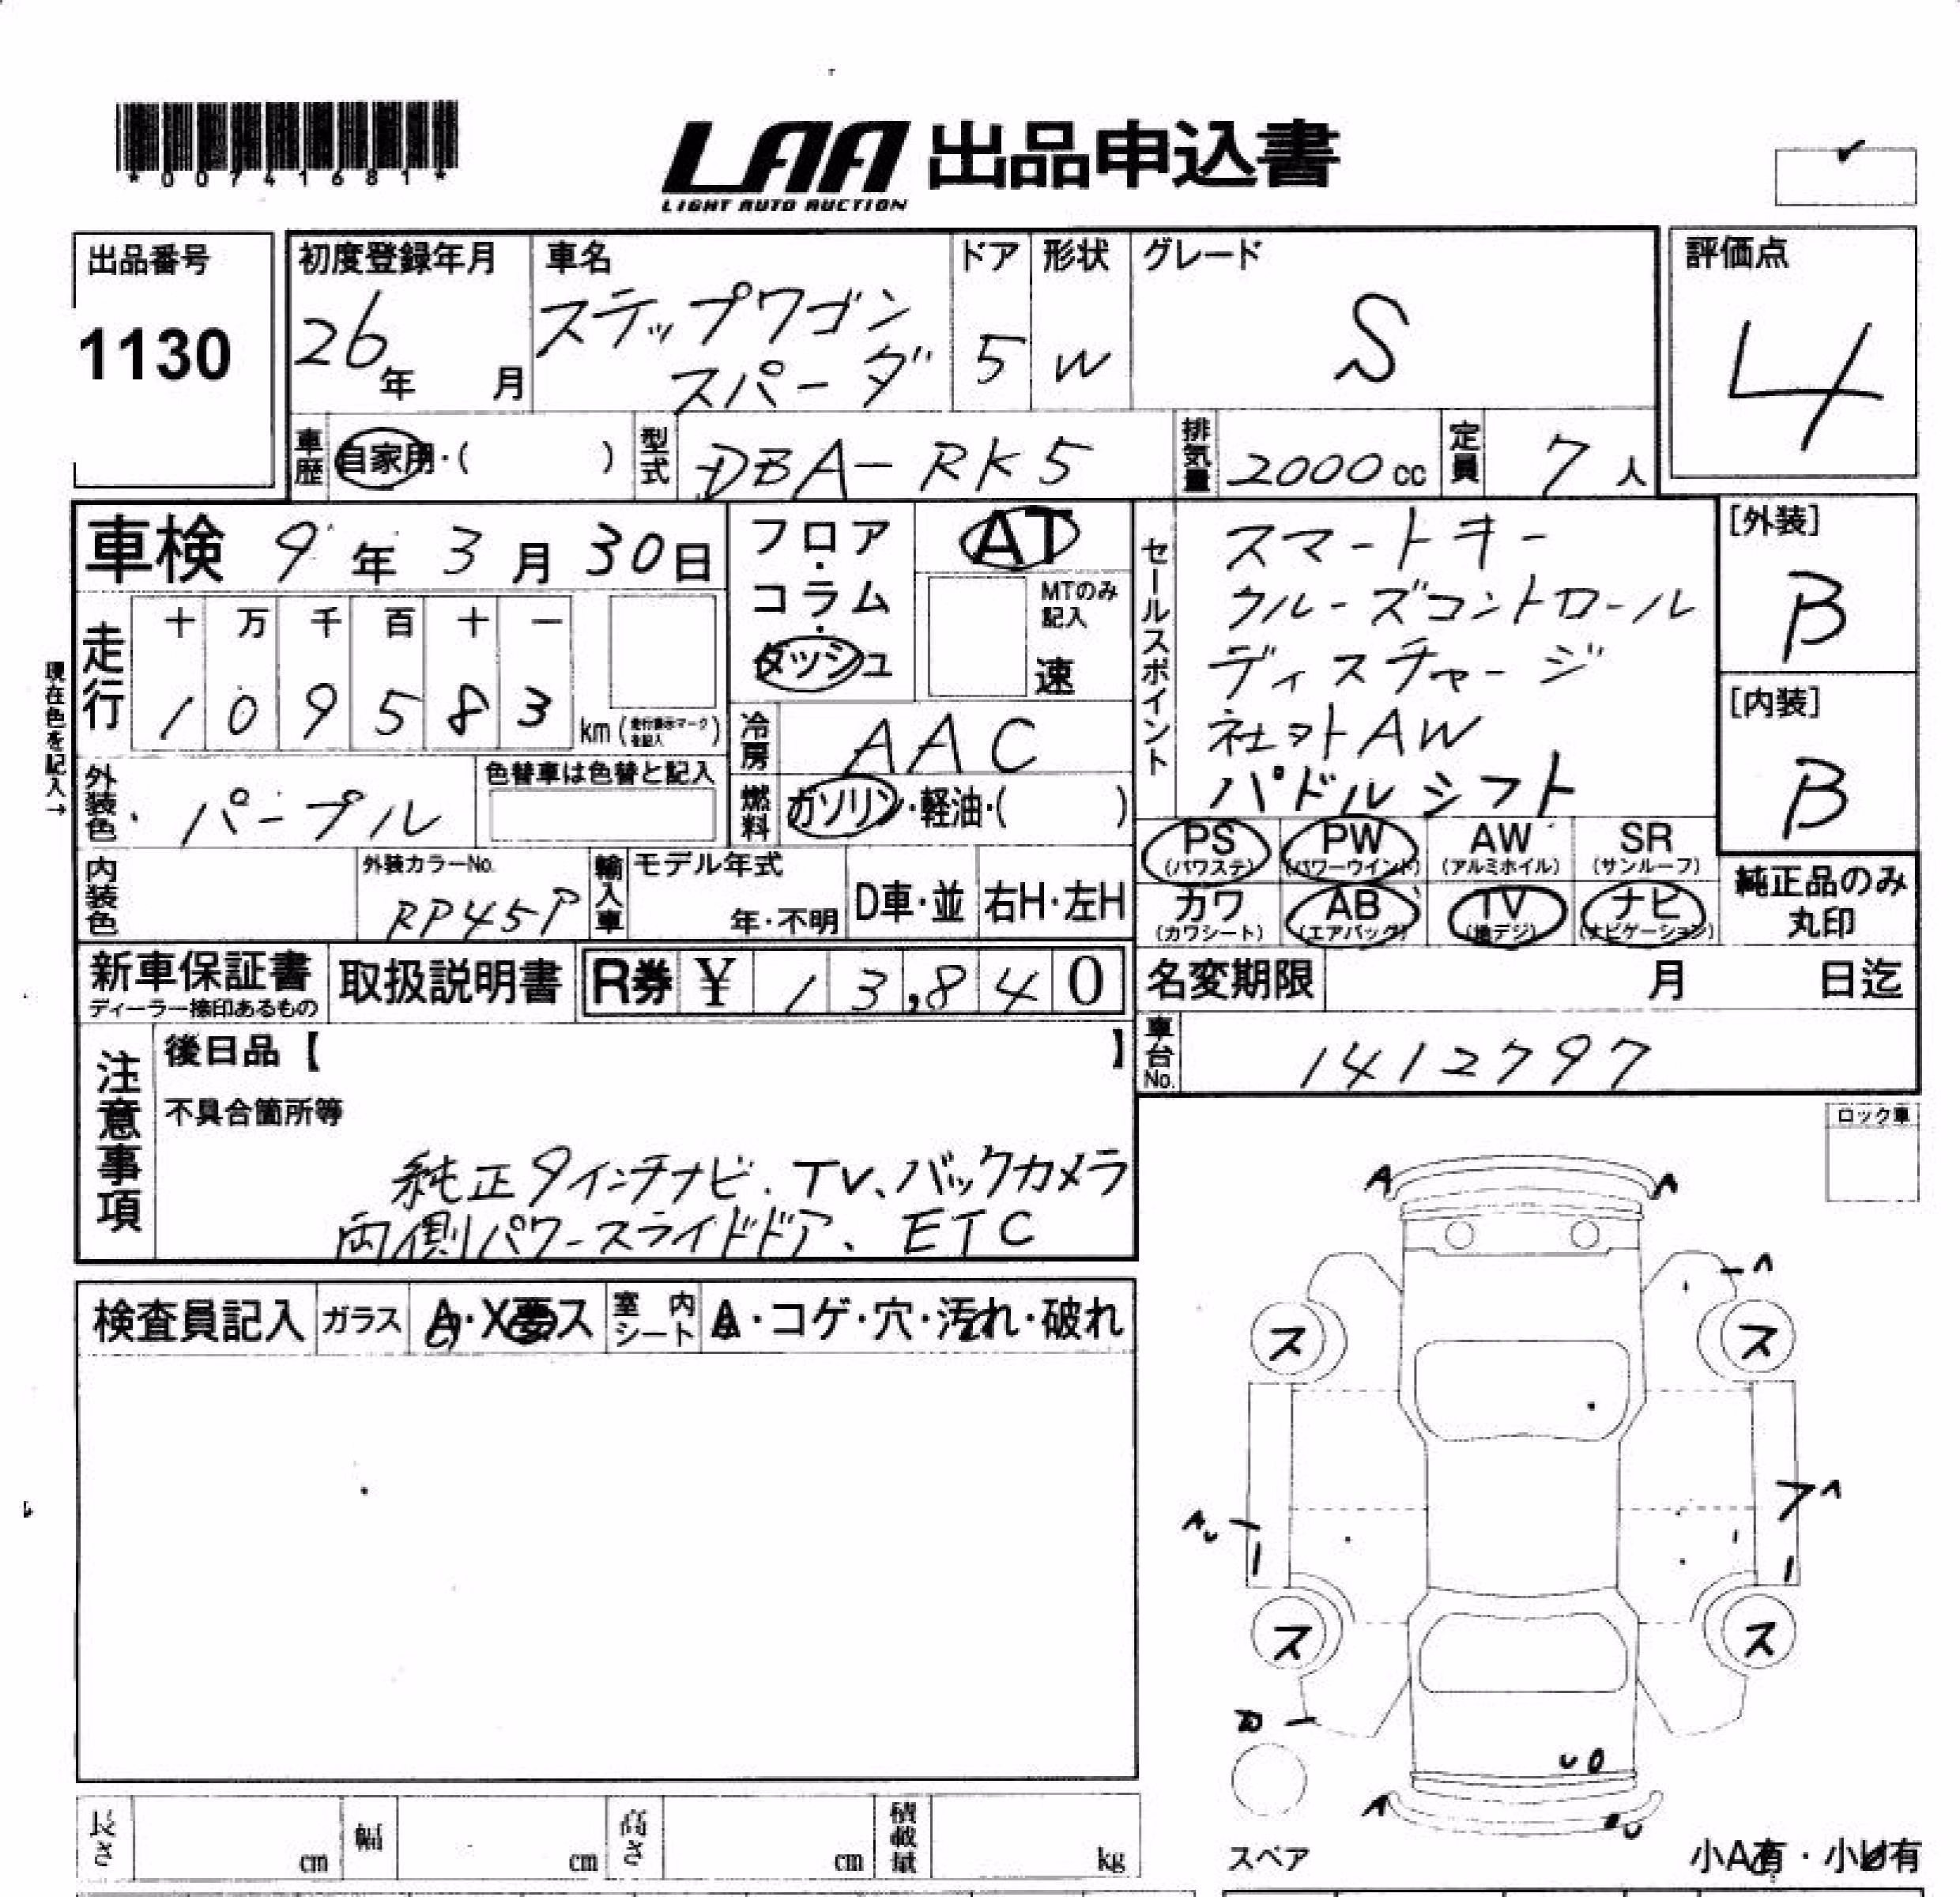 *00741681*
LAA 出品申込書
LIGHT AUTO AUCTION
出品番号
1130
初度登録年月
26年 月
車名
ステップワゴン
スパーダ
ドア
5
形状
W
グレード
S
評価点
4
車歴 自家用・( )
型式 DBA-RK5
排気量 2000cc
定員 7人
車検 9年3月30日
フロア・コラム・ダッシュ
AT
MTのみ記入
速
セールスポイント
スマートキー
クルーズコントロール
ディスチャージ
社外AW
パドルシフト
[外装]
B
[内装]
B
現在色を記入→
走行
十 万 千 百 十 一
1 0 9 5 8 3 km (走行表示マークを記入)
冷房 AAC
外装色 パープル
色替車は色替と記入
燃料 ガソリン・軽油・( )
PS (パワステ)
PW (パワーウインド)
AW (アルミホイル)
SR (サンルーフ)
カワ (カワシート)
AB (エアバッグ)
TV (地デジ)
ナビ (ナビゲーション)
純正品のみ
丸印
内装色
外装カラーNo.
RP45P
輸入車
モデル年式
年・不明
D車・並
右H・左H
新車保証書
ディーラー捺印あるもの
取扱説明書
R券 ¥ 13,840
名変期限 月 日迄
車台No. 1412797
注意事項
後日品【 】
不具合箇所等
純正9インチナビ、TV、バックカメラ
両側パワースライドドア、ETC
ロック車
検査員記入
ガラス
A・X要ス
室内シート
A・コゲ・穴・汚れ・破れ
A A
A
ス ス
A
ス ス
A
スペア
小A有・小U有
長さ cm
幅 cm
高さ cm
積載量 kg